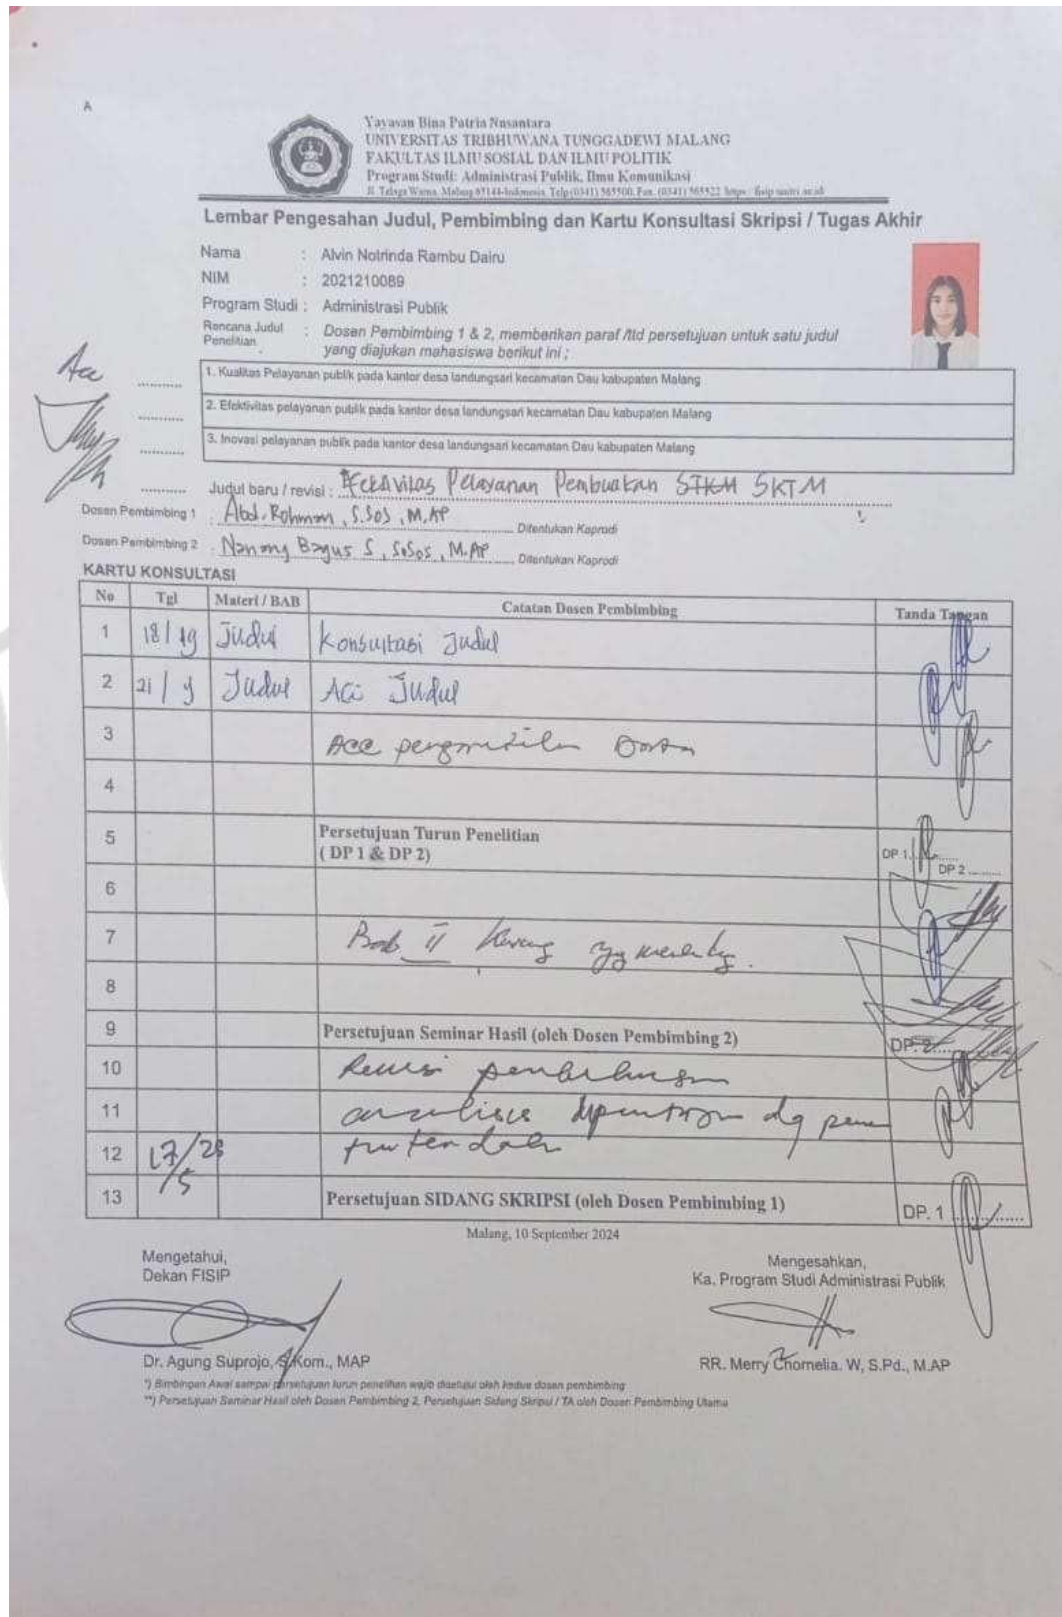 A
Yayasan Bina Patria Nusantara
UNIVERSITAS TRIBHUWANA TUNGGADEWI MALANG
FAKULTAS ILMU SOSIAL DAN ILMU POLITIK
Program Studi: Administrasi Publik, Ilmu Komunikasi
Jl. Telaga Warna, Malang 65144-Indonesia, Telp (0341) 565500, Fax. (0341) 565522
Lembar Pengesahan Judul, Pembimbing dan Kartu Konsultasi Skripsi / Tugas Akhir
Nama : Alvin Notrinda Rambu Dairu
NIM : 2021210089
Program Studi : Administrasi Publik
Rencana Judul Penelitian : Dosen Pembimbing 1 & 2, memberikan paraf /ttd persetujuan untuk satu judul
yang diajukan mahasiswa berikut ini ;
Acc
1. Kualitas Pelayanan publik pada kantor desa landungsari kecamatan Dau kabupaten Malang
2. Efektivitas pelayanan publik pada kantor desa landungsari kecamatan Dau kabupaten Malang
3. Inovasi pelayanan publik pada kantor desa landungsari kecamatan Dau kabupaten Malang
Judul baru / revisi : Pelayanan Pembuatan SKTM
Dosen Pembimbing 1 : Abd. Rohman, S.Sos, M.AP Ditentukan Kaprodi
Dosen Pembimbing 2 : Nanang Bagus S, S.Sos, M.AP Ditentukan Kaprodi
KARTU KONSULTASI
No Tgl Materi / BAB Catatan Dosen Pembimbing Tanda Tangan
1 18/ Judul Konsultasi Judul
2 21/ Judul Acc Judul
3 Acc
4
5 Persetujuan Turun Penelitian
( DP 1 & DP 2) DP 1 DP 2
6
7 Bab II
8
9 Persetujuan Seminar Hasil (oleh Dosen Pembimbing 2) DP. 2
10 Revisi
11 dg
12
13 Persetujuan SIDANG SKRIPSI (oleh Dosen Pembimbing 1) DP. 1
Malang, 10 September 2024
Mengetahui,
Dekan FISIP
Mengesahkan,
Ka. Program Studi Administrasi Publik
Dr. Agung Suprojo, S.Kom., MAP
RR. Merry Chornelia. W, S.Pd., M.AP
*) Bimbingan Awal sampai persetujuan turun penelitian wajib disetujui oleh kedua dosen pembimbing
**) Persetujuan Seminar Hasil oleh Dosen Pembimbing 2, Persetujuan Sidang Skripsi / TA oleh Dosen Pembimbing Utama